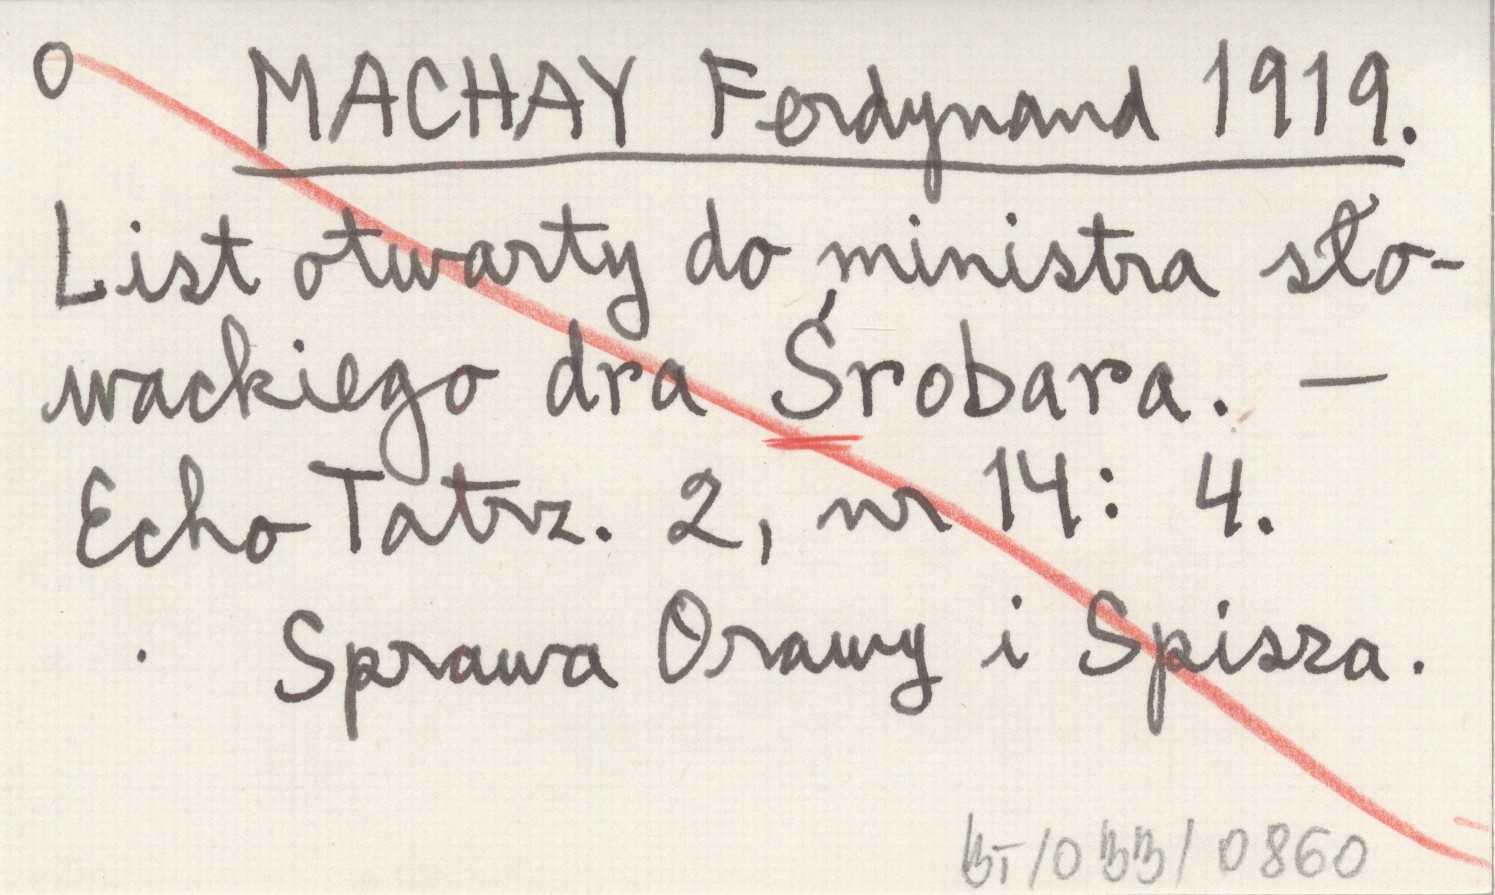 O MACHAY Ferdynand 1919.
List otwarty do ministra sło-
wackiego dra Śrobara. —
Echo Tatrz. 2, nr 14: 4.
Sprawa Orawy i Spisza.
/ 0860